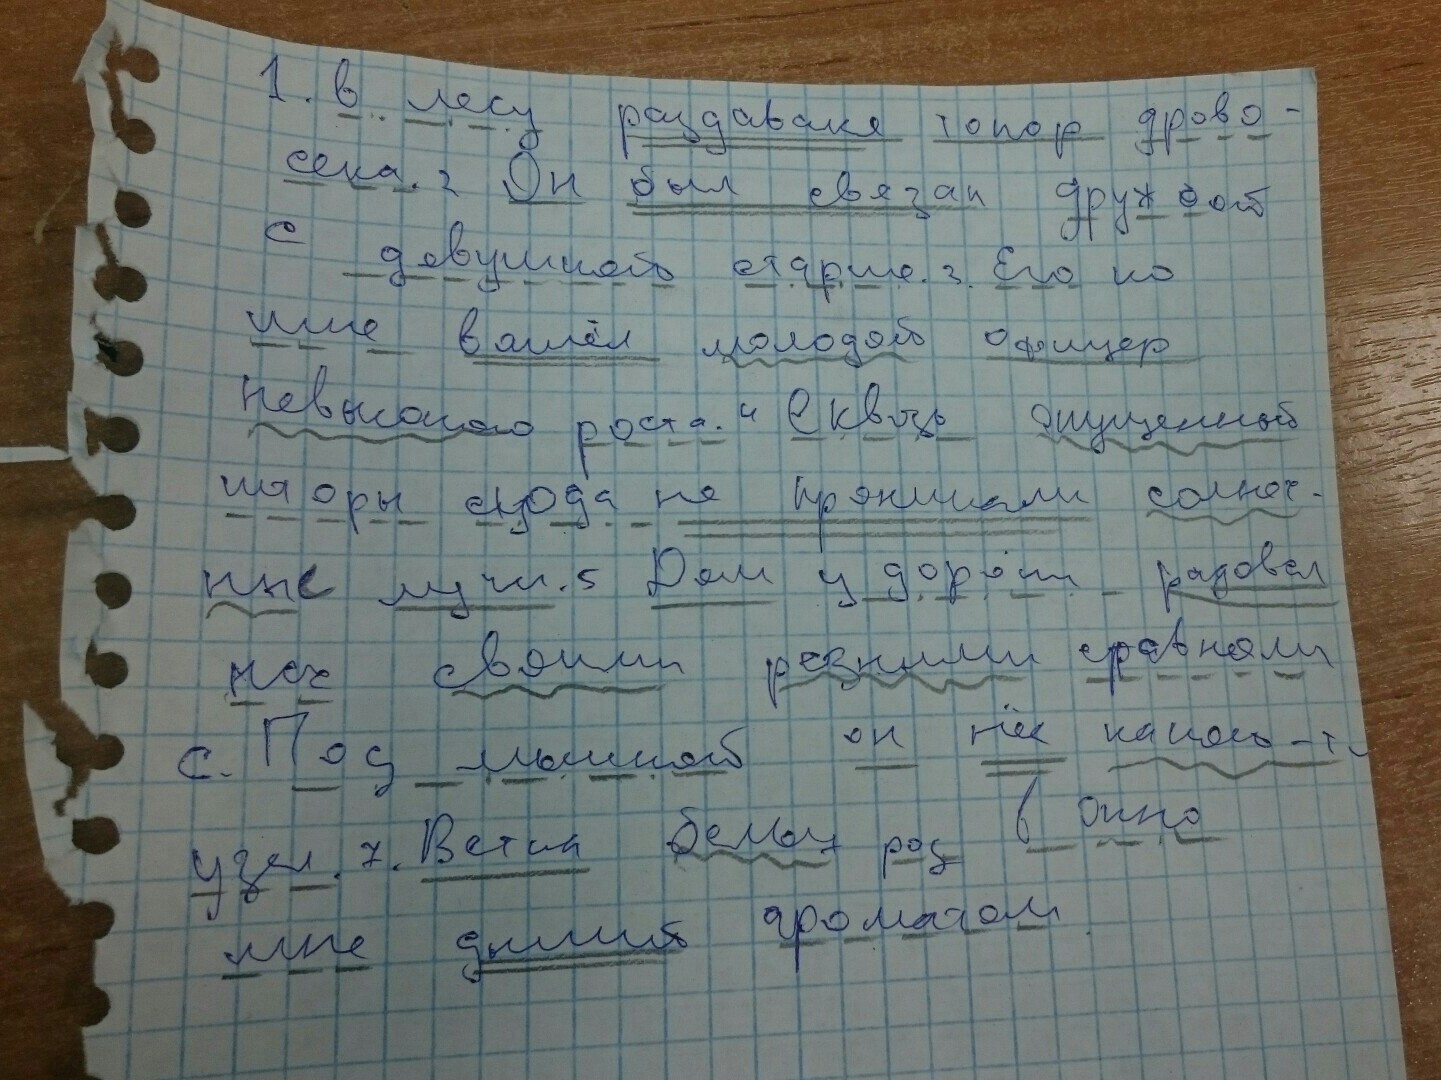 1. в лесу раздавался топор дрово-
сека. 2 Он был связан дружбой
с девушкой старше. 3. Его ко
мне вошёл молодой офицер
невысокого роста. 4 Сквозь опущенный
шторы сюда не проникали солнеч-
ные лучи. 5 Дом у дороги радовал
нас своими резными ставнями
6. Под мышкой он нёс какой-то
узел. 7. Ветка белых роз в окно
мне дышит ароматом